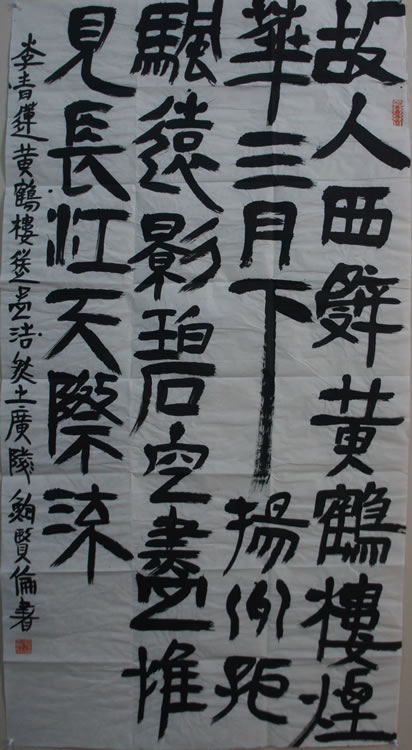 故人西辤黄鶴樓煙
華三月下揚州孤
颿遠影碧空盡惟
見長江天際流
李青蓮黄鶴樓送孟浩然之廣陵 鮑賢倫書